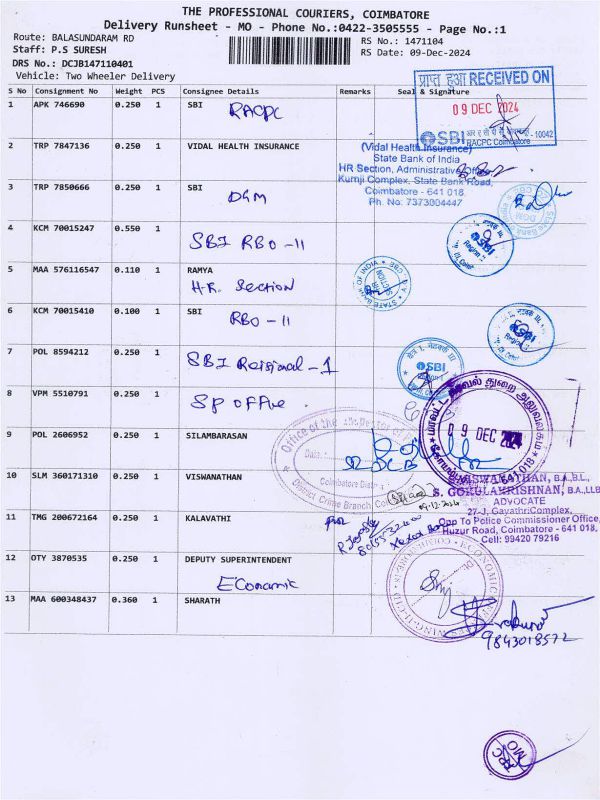 THE PROFESSIONAL COURIERS, COIMBATORE
Delivery Runsheet - MO - Phone No.:0422-3505555 - Page No.:1
Route: BALASUNDARAM RD
RS No.: 1471104
Staff: P.S SURESH
RS Date: 09-Dec-2024
DRS No.: DCJB147110401
Vehicle: Two Wheeler Delivery
S No Consignment No Weight PCS Consignee Details Remarks Seal & Signature
प्राप्त हुआ RECEIVED ON
09 DEC 2024
SBI
RACPC Coimbatore - 10042
1 APK 746690 0.250 1 SBI
RACPC
2 TRP 7847136 0.250 1 VIDAL HEALTH INSURANCE
(Vidal Health Insurance)
State Bank of India
HR Section, Administrative Office
Kurnji Complex, State Bank Road,
Coimbatore - 641 018.
Ph. No: 7373004447
3 TRP 7850666 0.250 1 SBI
DGM
4 KCM 70015247 0.550 1
SBI RBO -II
SBI
5 MAA 576116547 0.110 1 RAMYA
HR. Section
STATE BANK OF INDIA
SECTION
6 KCM 70015410 0.100 1 SBI
RBO -II
SBI
7 POL 8594212 0.250 1
SBI Reisional -1
SBI
8 VPM 5510791 0.250 1
SP office
மாவட்ட காவல் துறை அலுவலகம்
09 DEC 2024
641 018
9 POL 2606952 0.250 1 SILAMBARASAN
Office of the Inspector of
Coimbatore District
District Crime Branch,
DCB
10 SLM 360171310 1 0.250 VISWANATHAN
VISWANATHAN, B.A.,B.L.,
S. GOKULAKRISHNAN, B.A.,LLB
ADVOCATE
27-J, GayathriComplex,
Opp To Police Commissioner Office,
Huzur Road, Coimbatore - 641 018,
Cell: 99420 79216
09-12-2024
11 TMG 200672164 0.250 1 KALAVATHI
12 OTY 3870535 0.250 1 DEPUTY SUPERINTENDENT
Economic
ECONOMIC
13 MAA 600348437 0.360 1 SHARATH
9843018572
TPC
MO